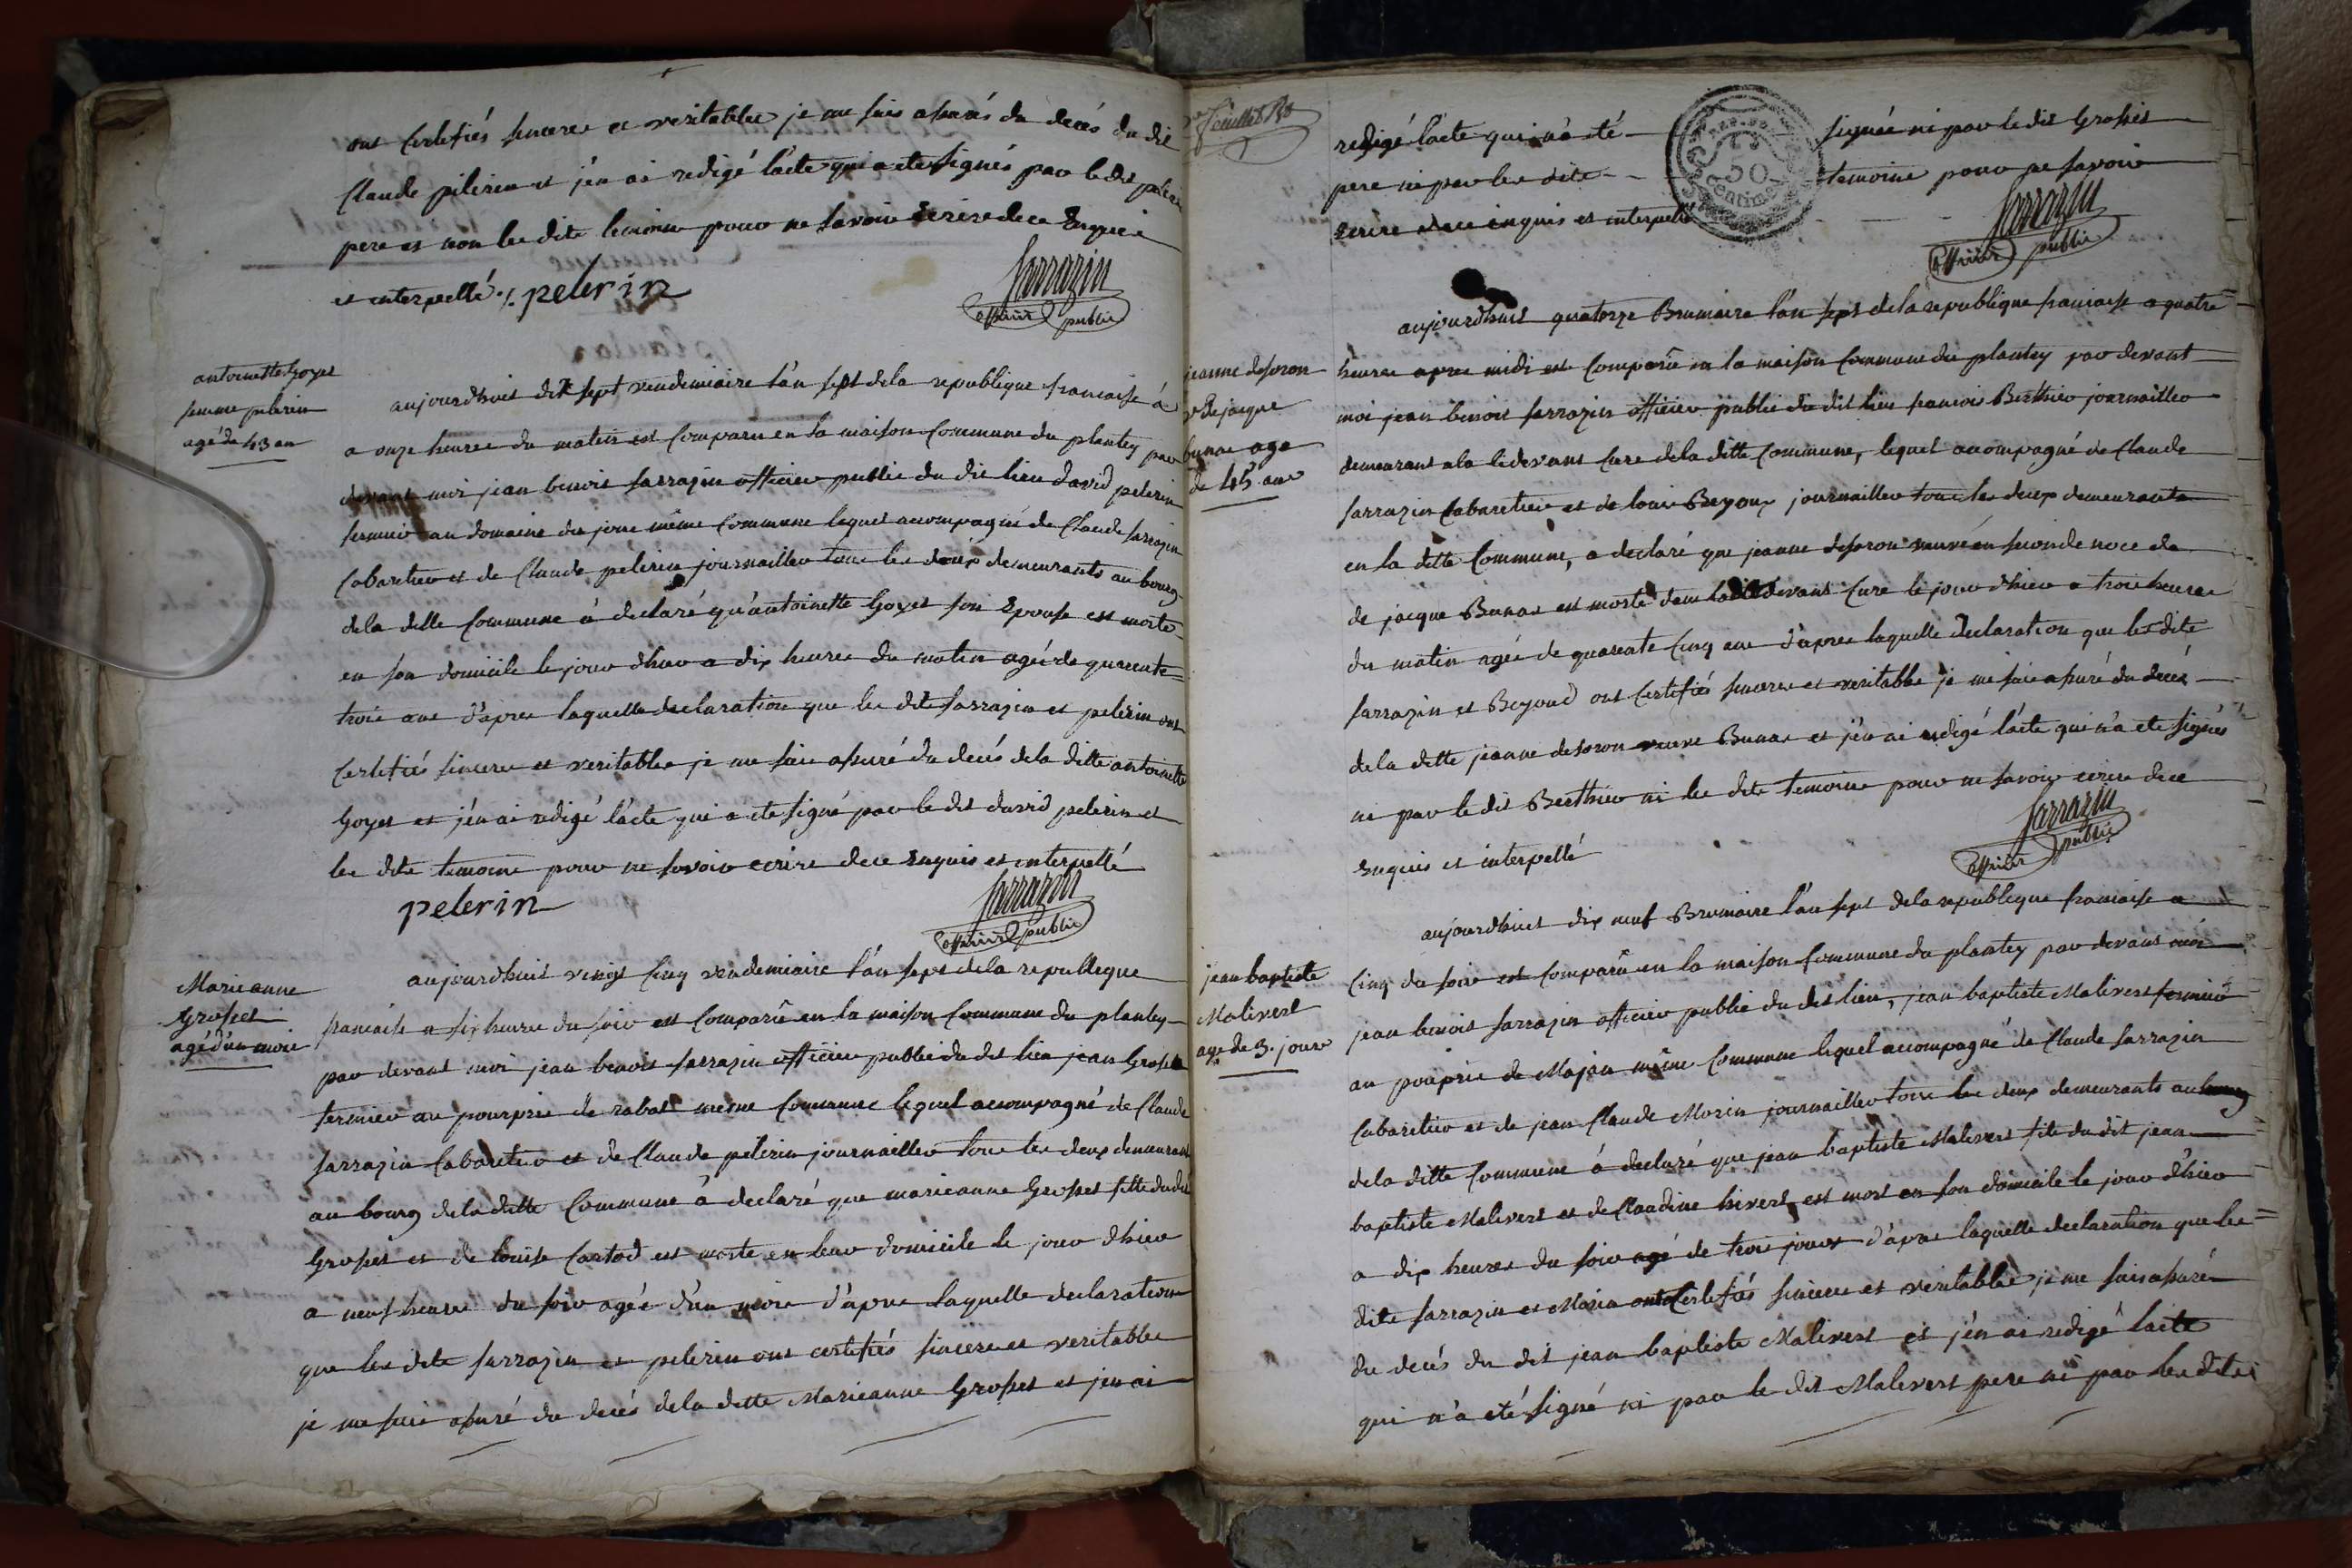 ont certifiés sincere et veritable je me suis assurés du decés du dit
Claude pelerin et j'en ai redigé l'acte qui a ete signés par le dit pelerin
pere et non les dits temoins pour ne savoir ecrire de ce Enquis
et interpellé ./. pelerin
Sarrazin
officier public
antoinette Goyet
femme pelerin
agé de 43 an
aujourdhuit dix sept vendemiaire l'an sept de la republique francaise à
a onze heures du matin est comparu en la maison commune du plantey par
devant moi jean benoit sarrazin officier public du dit lieu david pelerin
fermier au domaine des jone même commune lequel acompagné de Claude sarrazin
cabaretier et de Claude pelerin journaillier tous les deux demeurants au bourg
de la ditte commune à declaré qu'antoinette Goyet son Epouse est morte
en son domicile le jour dhier a dix heures du matin agée de quarente
trois ans d'apres laquelle declaration que les dits sarrazin et pelerin ont
certifiés sincere et veritable je me suis assuré du decés de la ditte antoinette
Goyet et j'en ai redigé l'acte qui a ete signé par le dit david pelerin et
les dits temoins pour ne savoir ecrire de ce Enquis et interpellé
pelerin
Sarrazin
officier public
Marieanne
Grosset
agé d'un mois
aujourdhuit vingt cinq vendemiaire l'an sept de la republique
francaise a six heures du soir est comparû en la maison commune du plantey
par devant moi jean benoit sarrazin officier public du dit lieu jean Grosset
fermier au pourprie de rabat mesme commune lequel acompagné de Claude
sarrazin cabaretier et de Claude pelerin journaillier tous les deux demeurant
au bourg de la ditte commune à declaré que marieanne Grosset fille du dit
Grosset et de louise Cartod est morte en leur domicile le jour dhier
a neuf heures du soir agée d'un mois d'apres laquelle declaration
que les dits sarrazin et pelerin ont certifiés sincere et veritable
je me suis assuré du decés de la ditte Marieanne Grosset et j'en ai
feuillet
redigé l'acte qui n'à eté signée ni par le dit Grosset
pere ni par les dits temoins pour ne savoir
Ecrire de ce enquis et interpellé
50 centimes
Sarrazin
officier public
jeanne deforon
ve de jacque
bunae age
de 45 ans
aujourdhuit quatorze Brumaire l'an sept de la republique francaise a quatre
heures apres midi est comparû en la maison commune du plantey par devant
moi jean benoit sarrazin officier public du dit lieu francois Berthier journaillier
demeurant a la cidevant cure de la ditte commune, lequel acompagné de Claude
sarrazin cabaretier et de louis Beyoux journaillier tous les deux demeurants
en la ditte commune, a declaré que jeanne deforon veuve en seconde noce de
de jacque Bunae est morte dans la cidevant cure le jour dhier a trois heures
du matin agée de quarente cinq ans d'apres laquelle declaration que les dits
sarrazin et Beyoud ont certifiés sincere et veritable je me suis assuré du decés
de la ditte jeanne deforon veuve Bunae et j'en ai redigé l'acte qui n'a ete signés
ni par le dit Berthier ni les dits temoins pour ne savoir ecrire de ce
Enquis et interpellé
Sarrazin
officier public
jean baptiste
Malivert
age de 3. jours
aujourdhuit dix neuf Brumaire l'an sept de la republique francaise a
cinq du soir est comparû en la maison commune du plantey par devant moi
jean benoit sarrazin officier public du dit lieu, jean baptiste Malivert fermier
au pourprie de Majan même commune lequel acompagné de Claude sarrazin
cabaretier et de jean Claude Morin journaillier tous les deux demeurants au bourg
de la ditte commune à declaré que jean baptiste Malivert fils du dit jean
baptiste Malivert et de Claudine hivert est mort en son domicile le jour d'hier
a dix heures du soir agé de trois jours d'apres laquelle declaration que les
dits sarrazin et Morin ont certifiés sincere et veritable je me suis assuré
du decés du dit jean baptiste Malivert et j'en ai redigé l'acte
qui n'a eté signé ni par le dit Malivert pere ni par les dits